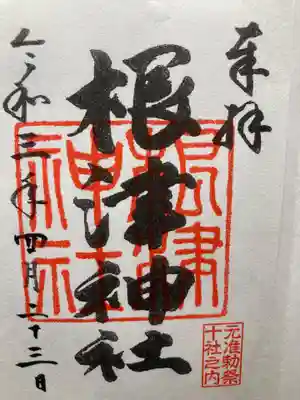 奉拝
根津神社
根津
神社
元准勅祭
十社之内
令和三年四月二十三日